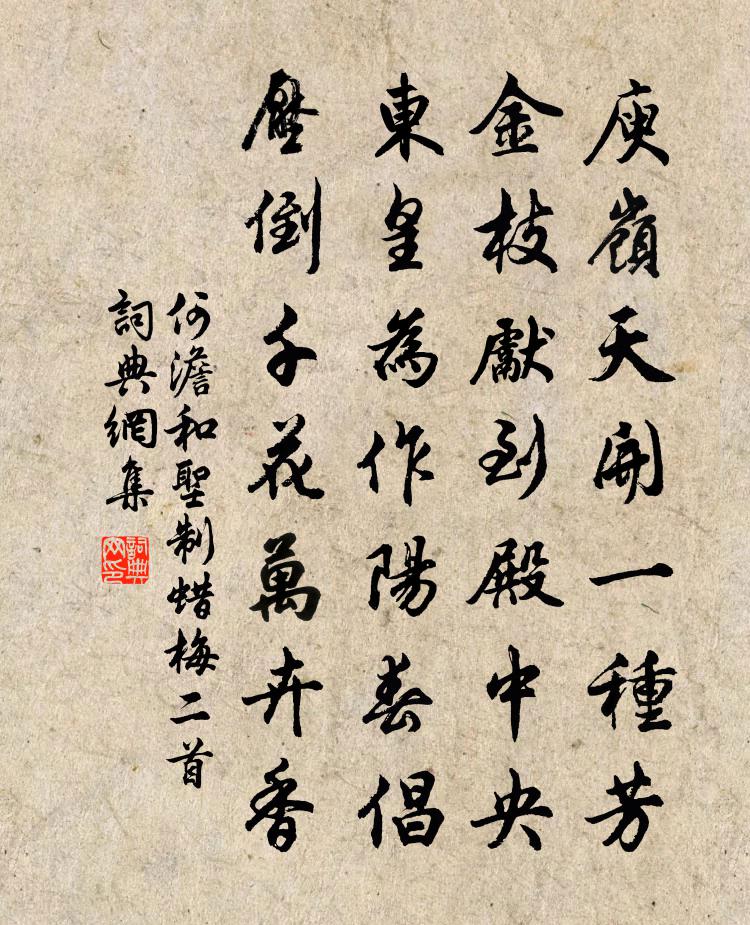 庾嶺天開一種芳
金枝獻到殿中央
東皇為作陽春倡
壓倒千花萬卉香
何澹和聖制蜡梅二首
詞典網集
詞典网印